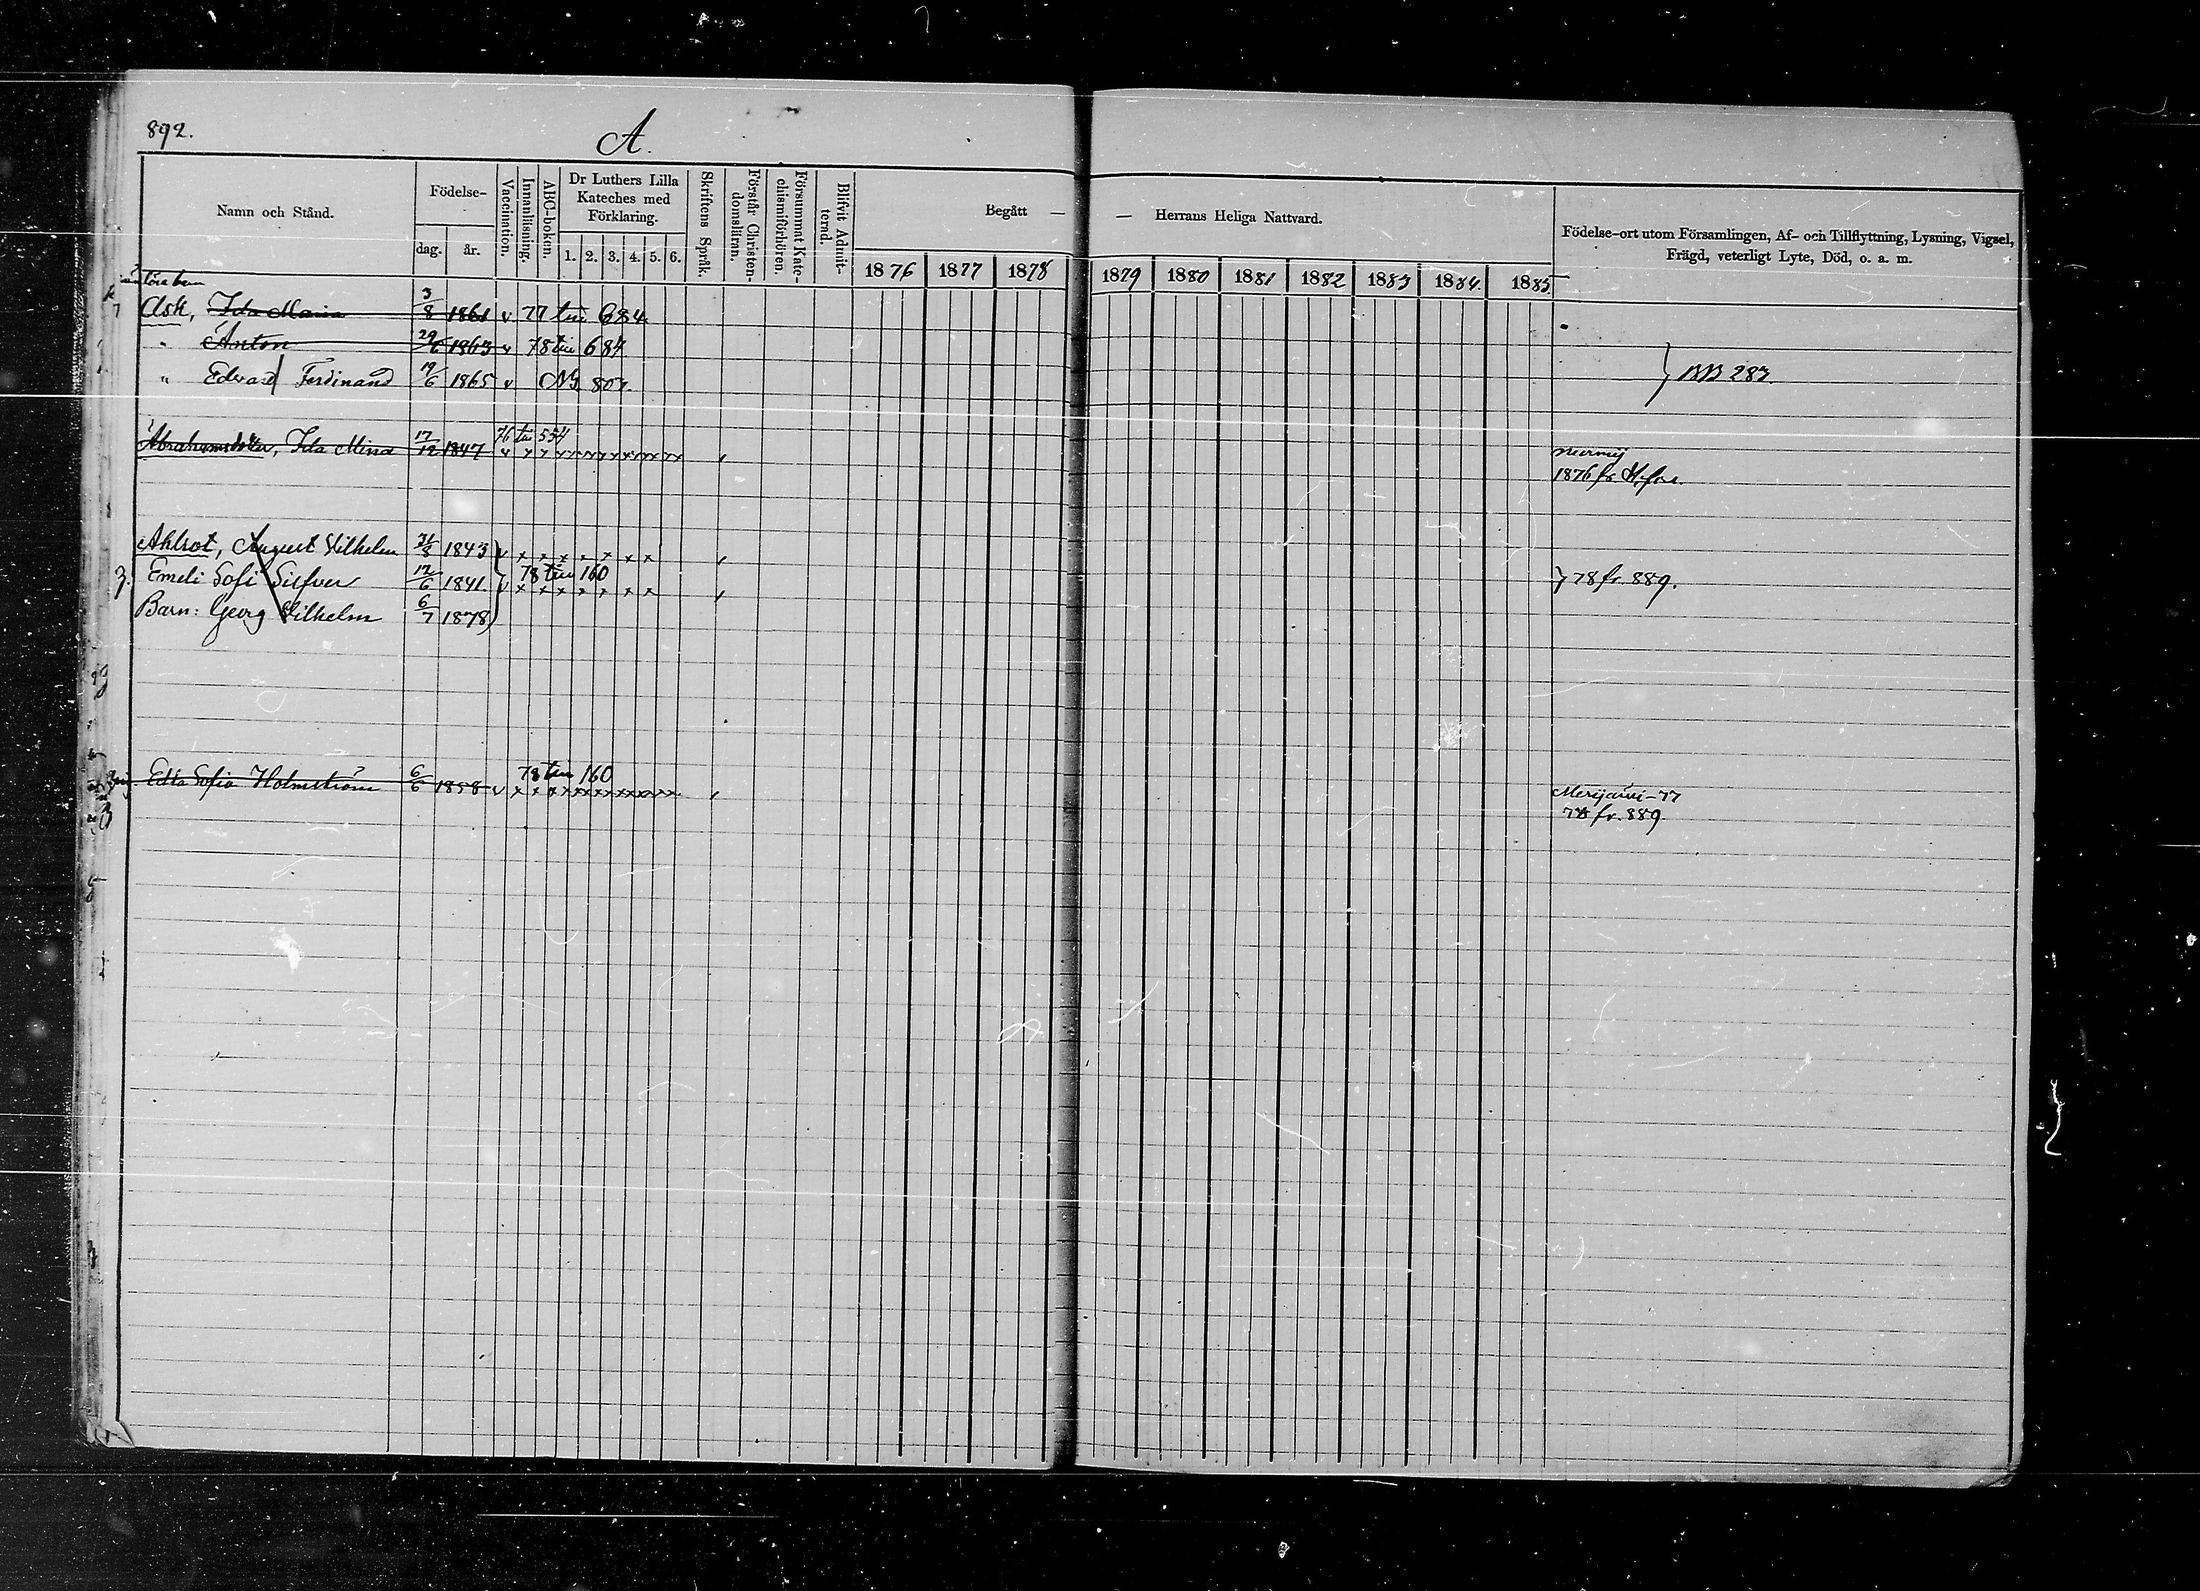 892.
A.
Namn och Stånd.
Födelse-
dag.
år.
Vaccination.
Innanläsning.
ABC-boken.
Dr Luthers Lilla
Kateches med
Förklaring.
1. 2. 3. 4. 5. 6.
Skriftens Språk.
Förstår Christen-
domsläran.
Försummat Kate-
chismiförhören.
Blifvit Admit-
terad.
Begått —
— Herrans Heliga Nattvard.
1876 1877 1878 1879 1880 1881 1882 1883 1884. 1885.
Födelse-ort utom Församlingen, Af- och Tillflyttning, Lysning, Vigsel,
Frägd, veterligt Lyte, Död, o. a. m.
Ask, Ida Maria 3/8 1861 v 77 till 684.
" Anton 29/6 1863 v 78 till 684
" Edvard Ferdinand 19/6 1865 v NB. 807.
} BB 283.
76 till 554
Ida Mina 17/12 1847 v x x
1876 fr H:fors.
Ahlrot, August Wilhelm 31/8 1843 v x x x x x x x
3. Emeli Sofi Silfver 12/6 1841. v 78 till 160
} 78 fr. 889.
Barn: Georg Wilhelm 6/7 1878
78 till 160
Edla Sofia Holmström 6/6 1858 v x x x
Merijärvi-77
78 fr. 889.